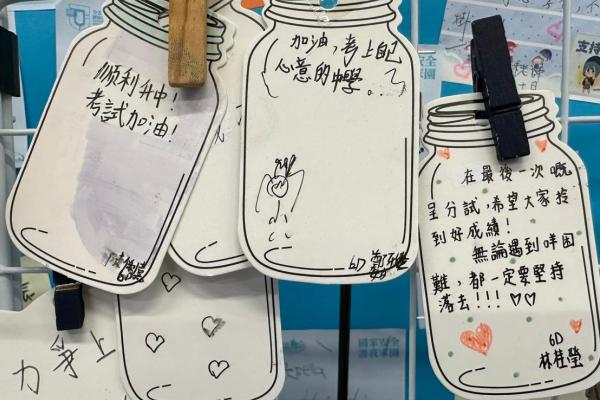 順利升中!
考試加油!
加油,考上自己
心意的中學。
6D
在最後一次嘅
呈分試,希望大家拎
到好成績!
無論遇到咩困
難,都一定要堅持
落去!!! ♡♡
6D
林桂瑩
力爭上
支持